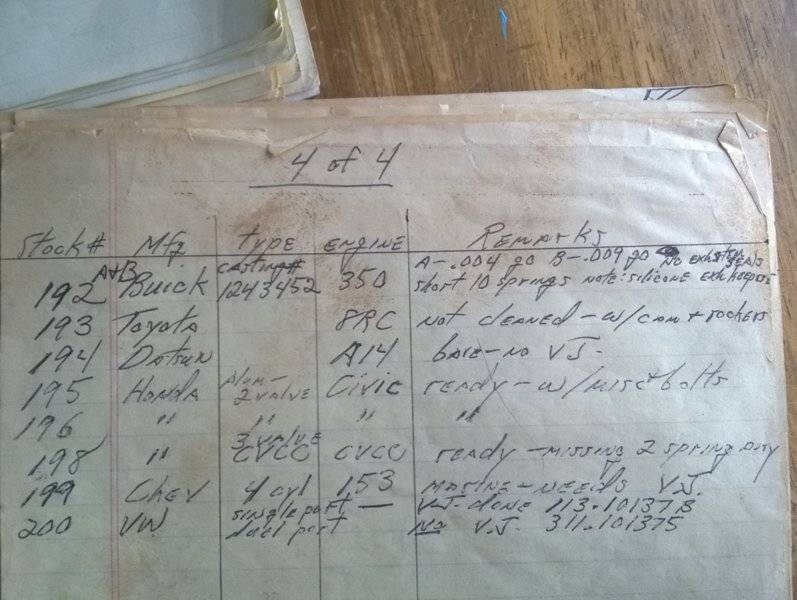 4 of 4
Stock # Mfg type engine Remarks
192 A+B Buick casting# 1243452 350 A-.004 go B-.009 go No exh seals
short 10 springs note: silicone exh keepers
193 Toyota 8RC not cleaned - w/cam + rockers
194 Datsun A14 bare - no V.J.
195 Honda Alum - 2 valve Civic ready - w/misc bolts
196 " " " "
198 " 3 valve CVCC CVCC ready - missing 2 spring
199 Chev 4 cyl 153 marine - needs V.J.
200 VW single port — V.J. done 113.101373
duel port No V.J. 311.101375